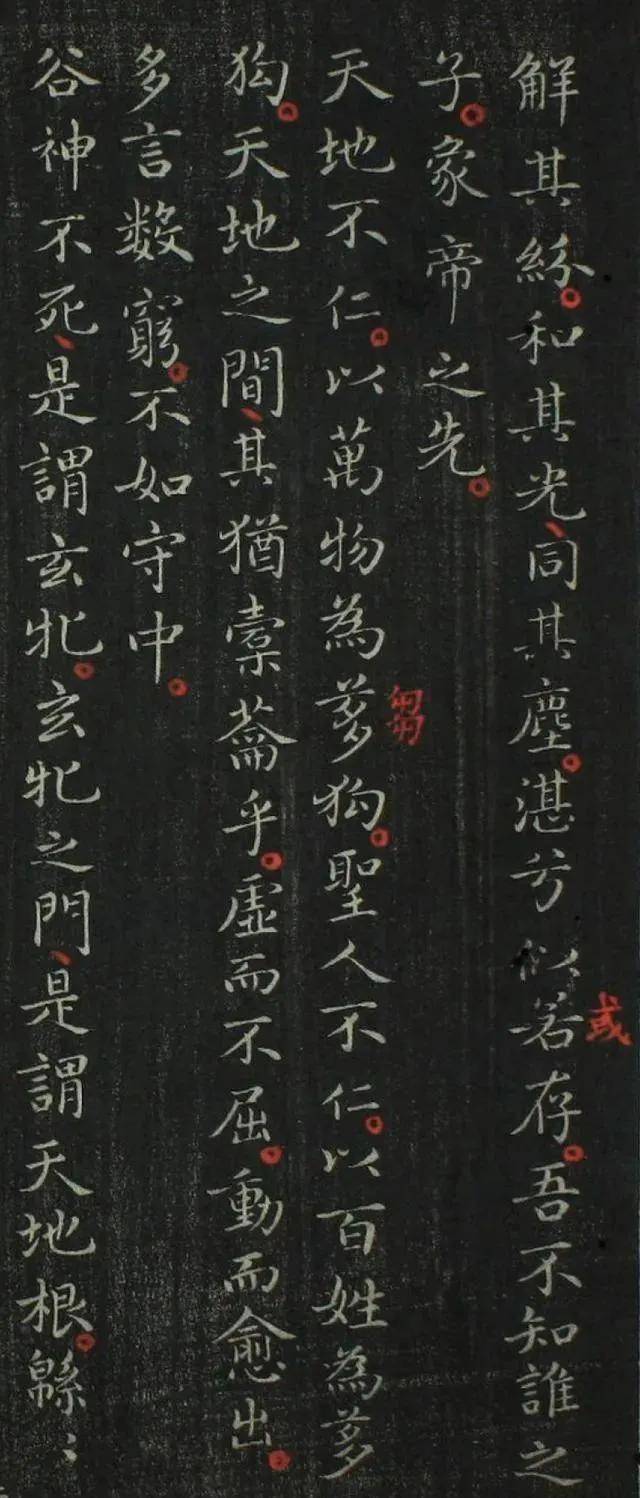 解其紛。和其光、同其塵。湛兮似若存。吾不知誰之
或
子。象帝之先。
天地不仁。以萬物為芻狗。聖人不仁。以百姓為芻
芻
狗。天地之間、其猶橐籥乎。虛而不屈。動而愈出。
多言數窮。不如守中。
谷神不死、是謂玄牝。玄牝之門、是謂天地根。緜〻